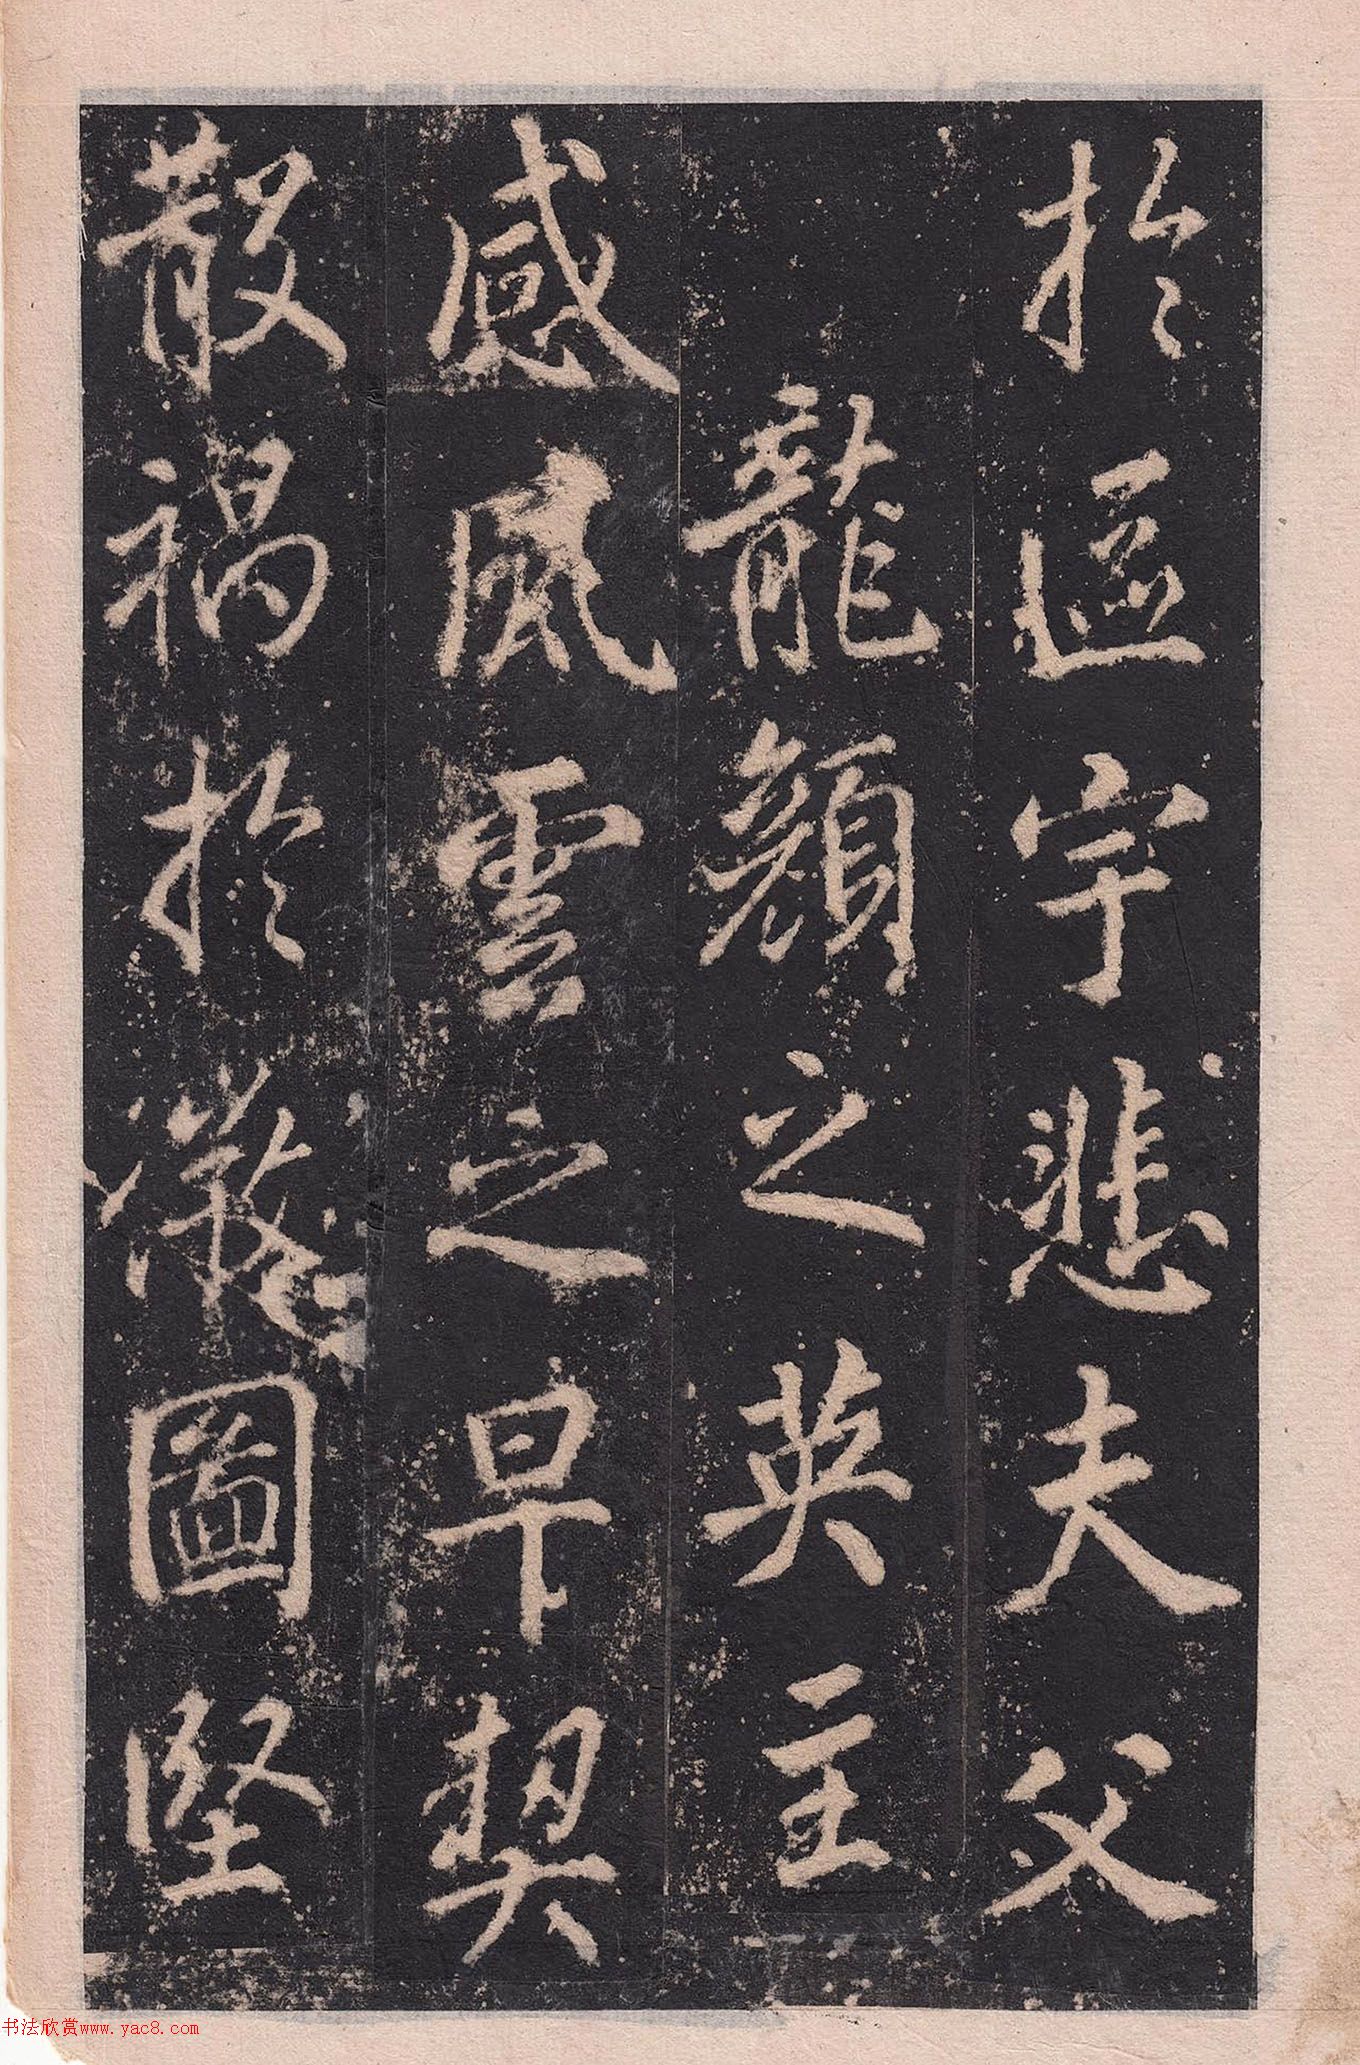 於區宇悲夫父
龍顏之英主
感風雲之早契
散禍於
圖堅
书法欣赏www.yac8.com